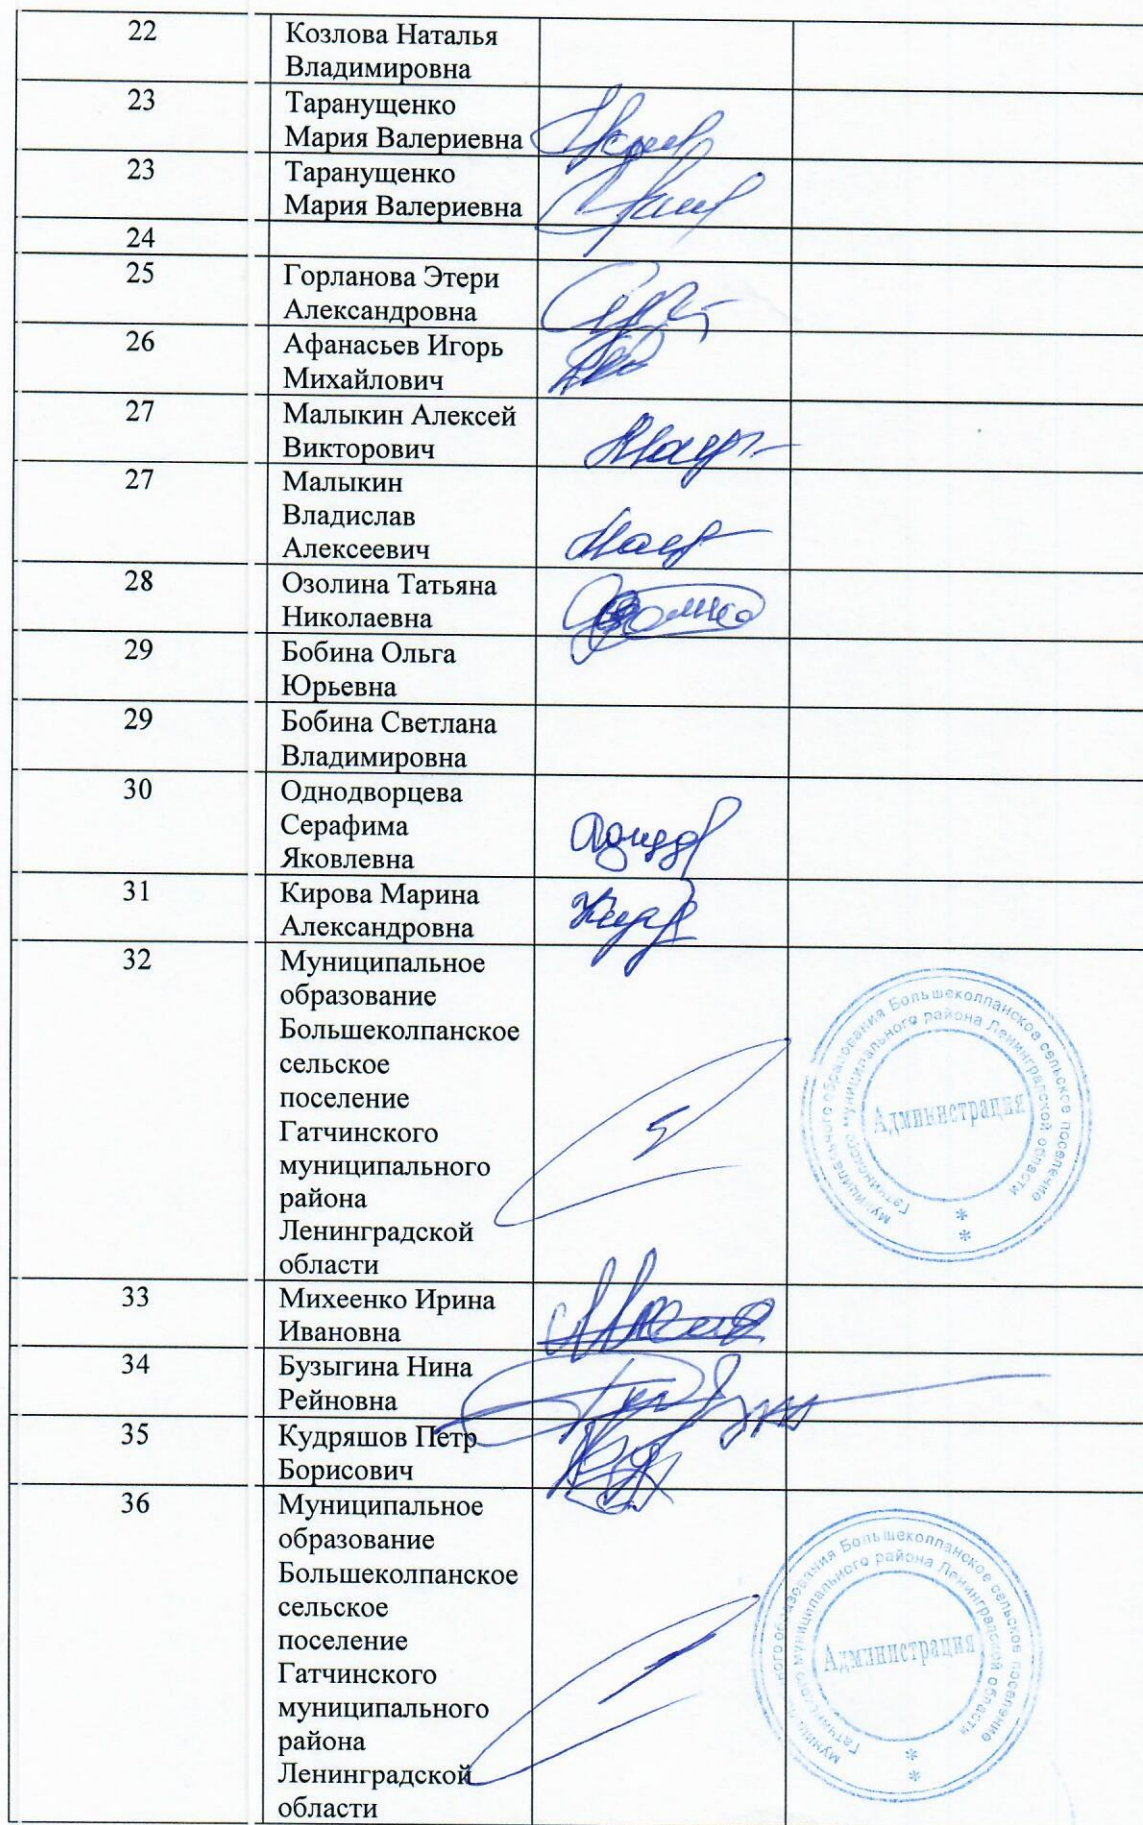 22
Козлова Наталья
Владимировна
23
Таранущенко
Мария Валериевна
23
Таранущенко
Мария Валериевна
24
25
Горланова Этери
Александровна
26
Афанасьев Игорь
Михайлович
27
Малыкин Алексей
Викторович
27
Малыкин
Владислав
Алексеевич
28
Озолина Татьяна
Николаевна
29
Бобина Ольга
Юрьевна
29
Бобина Светлана
Владимировна
30
Однодворцева
Серафима
Яковлевна
31
Кирова Марина
Александровна
32
Муниципальное
образование
Большеколпанское
сельское
поселение
Гатчинского
муниципального
района
Ленинградской
области
муниципального образования Большеколпанское сельское поселение
Гатчинского муниципального района Ленинградской области
Администрация
* *
33
Михеенко Ирина
Ивановна
34
Бузыгина Нина
Рейновна
35
Кудряшов Петр
Борисович
36
Муниципальное
образование
Большеколпанское
сельское
поселение
Гатчинского
муниципального
района
Ленинградской
области
образования Большеколпанское сельское поселение
Гатчинского муниципального района Ленинградской области
Администрация
* *